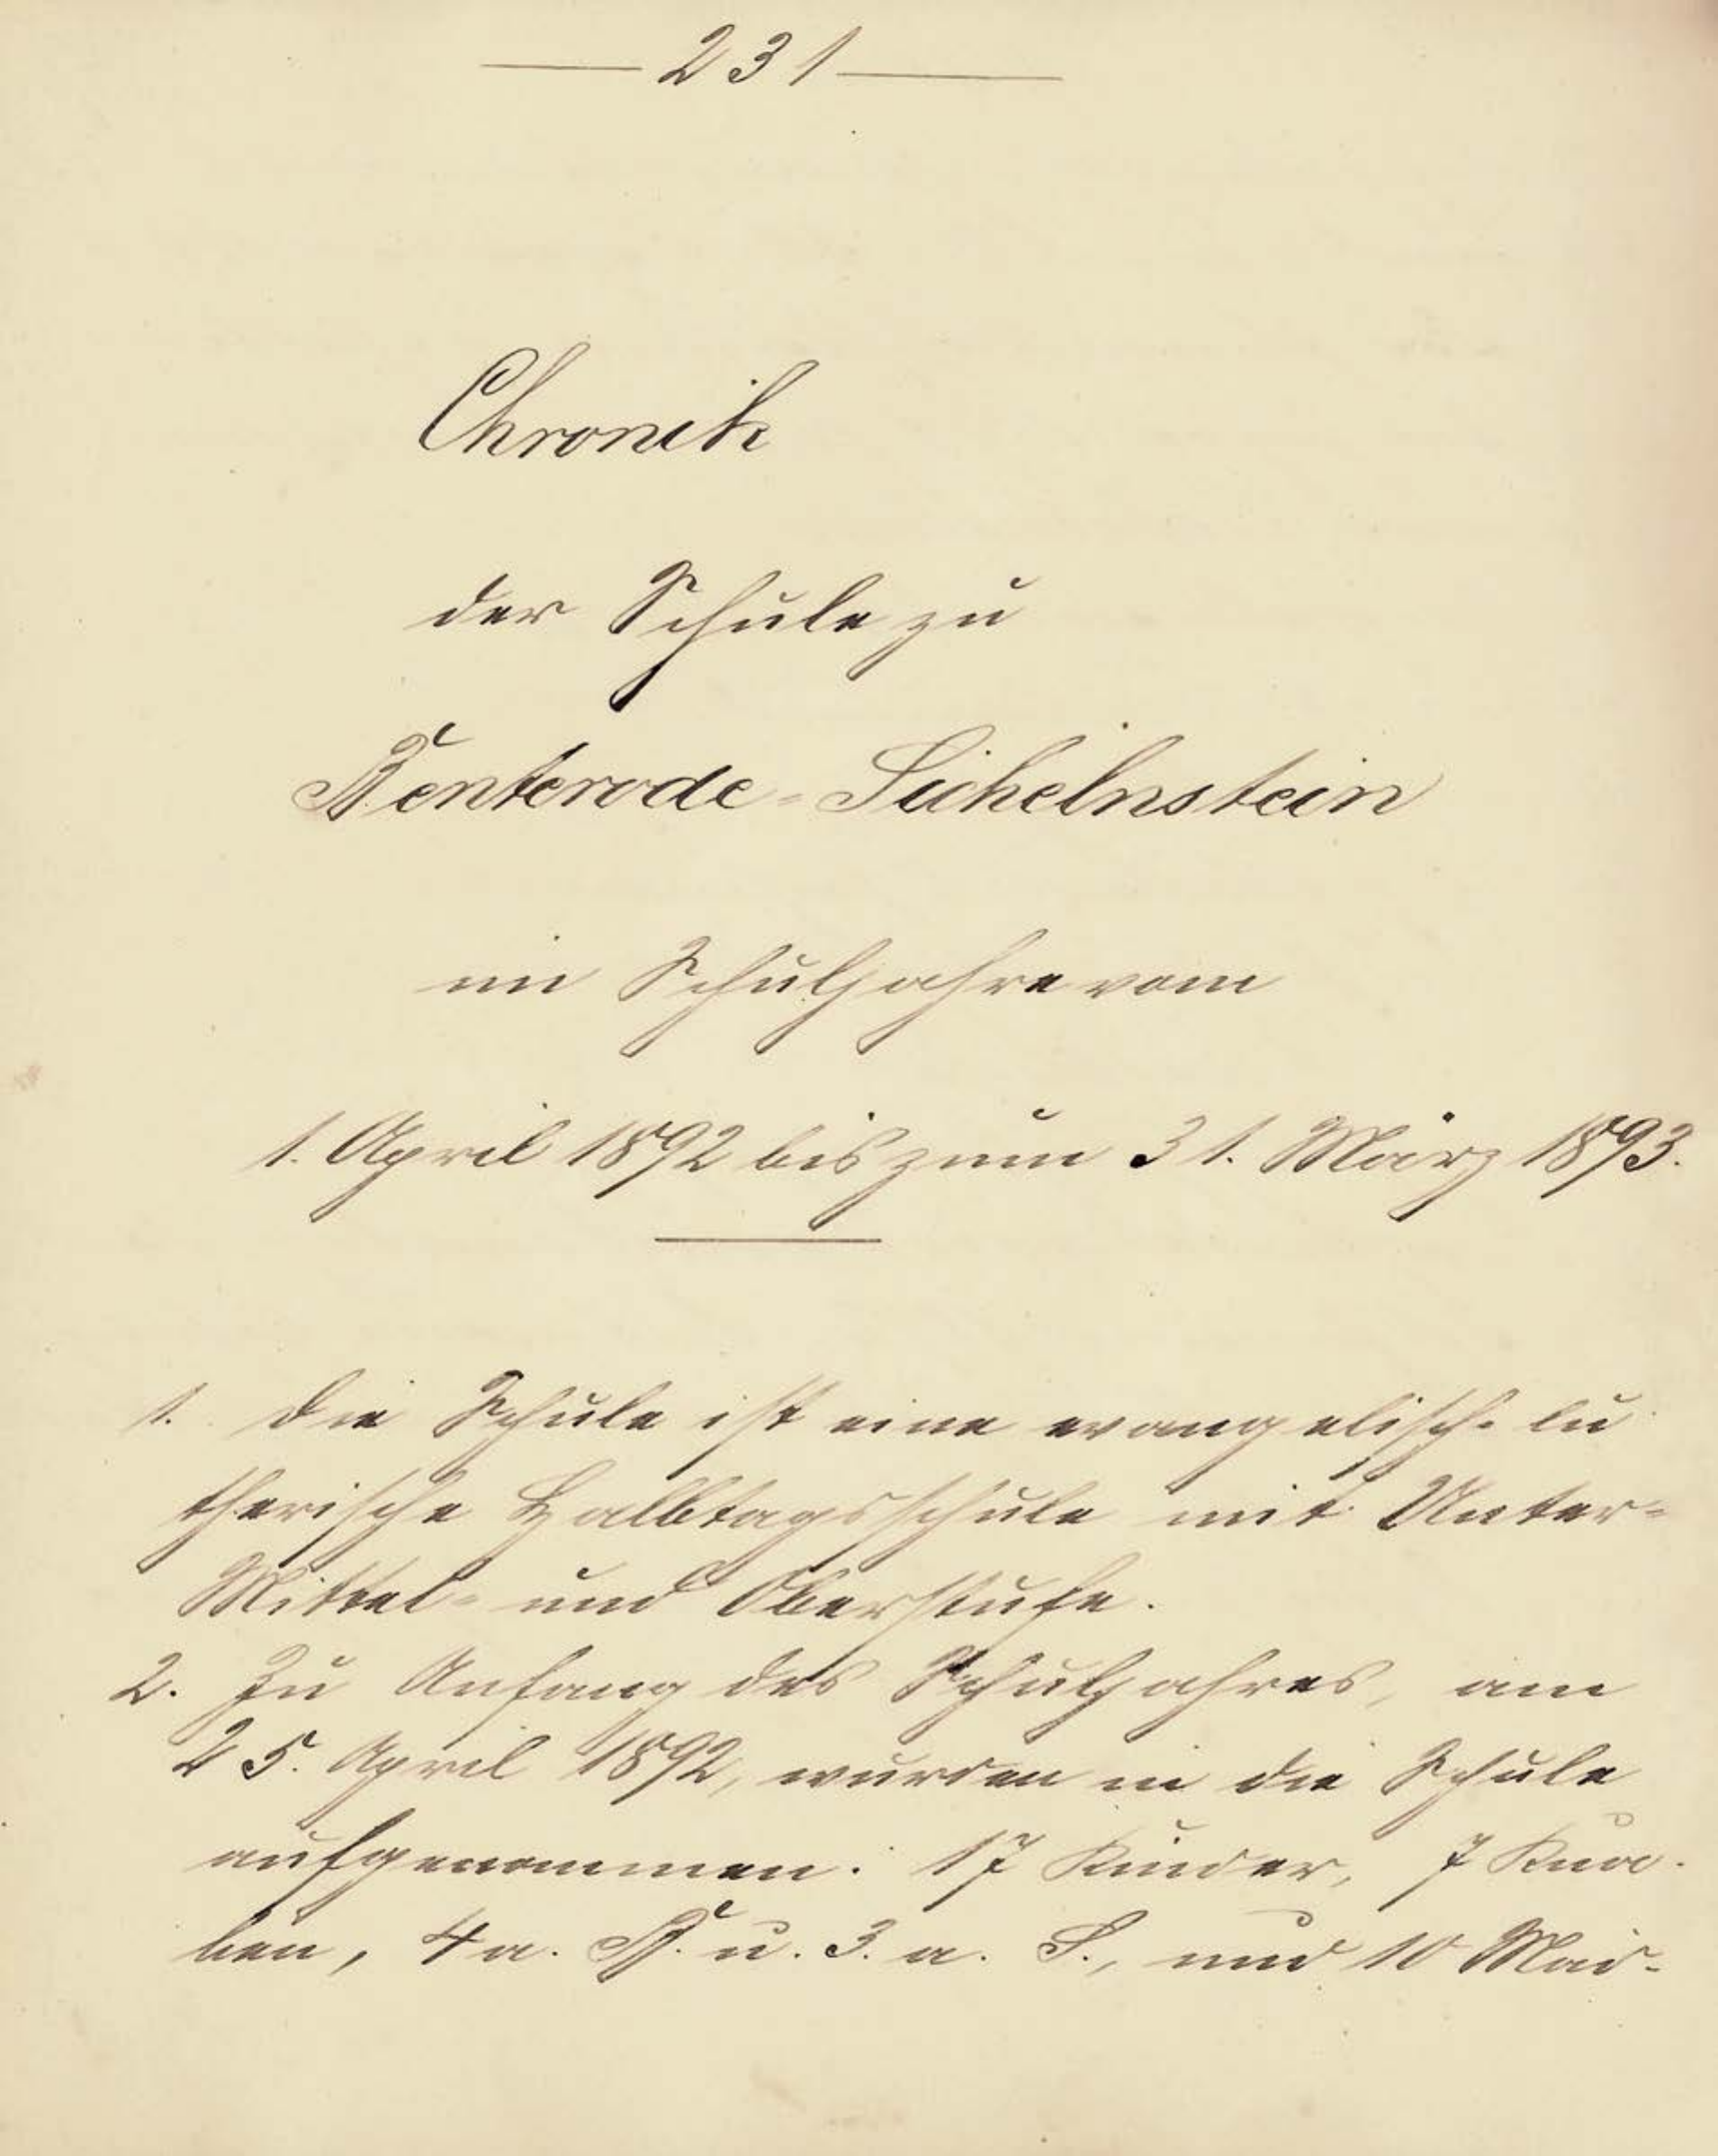 — 231 —
Chronik
der Schule zu
Benterode-Sichelnstein
im Schuljahre vom
1. April 1892 bis zum 31. März 1893.
1. Die Schule ist eine evangelisch-lu
therische Halbtagsschule mit Unter-
Mittel- und Oberstufe.
2. Zu Anfang des Schuljahres, am
25. April 1892, wurden in die Schule
aufgenommen: 17 Kinder, 7 Kna-
ben, 4 a. B. u. 3. a. S., und 10 Mäd-